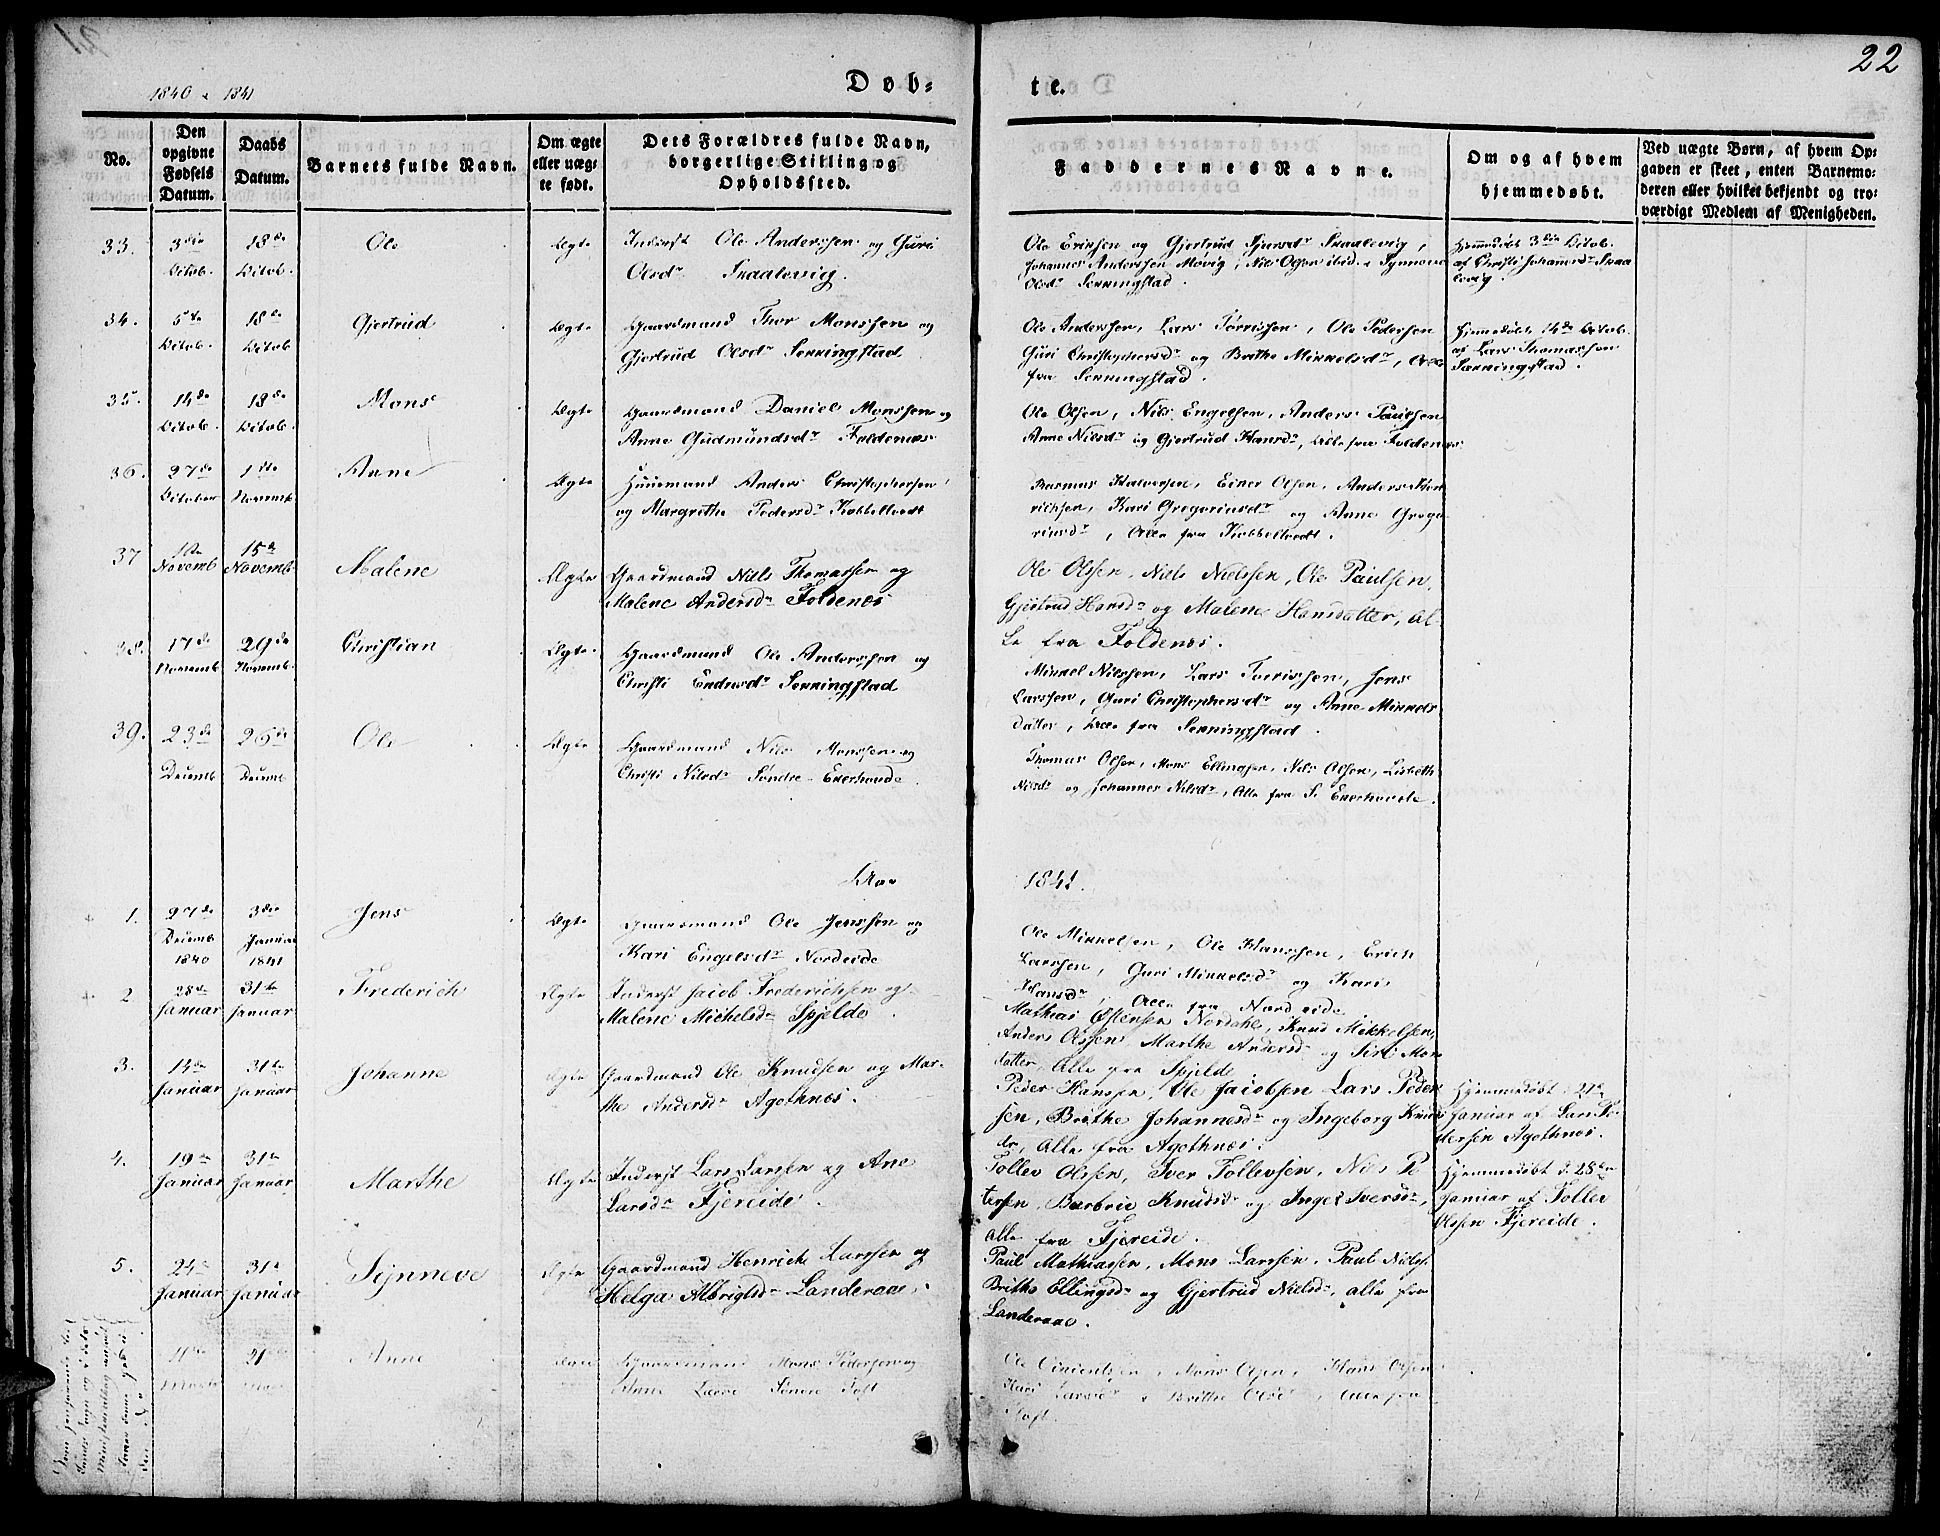 22
1840 & 1841
Døb=
te.
No.
Den opgivne Fødsels Datum.
Daabs Datum.
Barnets fulde Navn.
Om ægte eller uæg= te født.
Dets Forældres fulde Navn, borgerlige Stilling og Opholdssted.
Faddernes Navne.
Om og af hvem hjemmedøbt.
Ved uægte Børn, af hvem Op= gaven er skeet, enten Barnemo= deren eller hvilket bekjendt og tro= værdigt Medlem af Menigheden.
33. 3die Octob. 18de Octob. Ole Ægte
Inderst Ole Anderssen og Guri
Olsdr Skaalevig.
Ole Ericksen og Gjertrud Skaalevig,
Johannes Anderssen Møvig, Nils Olsen ibid. & Synneve
Olsdr Sekkingstad.
Hjemmedøbt 3die Octob.
af Christi Johannesdr Skaa
levig.
34. 5te Octob. 18de Octob. Gjertrud Ægte
Gaardmand Thor Monssen og
Gjertrud Olsdr Sekkingstad
Ole Anderssen, Lars Torrissen, Ole Pedersen
Guri Christophersdr og Brithe Mikkelsdr, Alle
fra Sekkingstad.
Hjemmedøbt 14de Octob.
af Lars Thomassen
Sekkingstad.
35. 14de Octob. 18de Octob. Mons Ægte
Gaardmand Daniel Monssen og
Anne Gudmundsdr Foldenæs
Ole Olsen, Nils Engelsen, Anders Paulsen
Anne Nilsdr og Gjertrud Hansdr, Alle fra Foldenæs.
36. 27de October 1ste Novemb. Anne Ægte
Huusmand Anders Christophersen
og Margrethe Pedersdr Kobbeltvedt
Rasmus Halversen, Einer Olsen, Anders
richsen, Kari Gregoriusdr og Anne Grego
riusdr, Alle fra Kobbeltvedt.
37 1ste Novemb 15de Novemb. Malene Ægte
Gaardmand Niels Thomassen og
Malene Andersdr Foldenæs
Ole Olssen, Niels Nielssen, Ole Paulsen,
Gjertrud Hansdr og Malene Hansdatter, al-
le fra Foldenæs.
38. 17de Novemb 29de Novemb. Christian Ægte
Gaardmand Ole Anderssen og
Christi Endresdr Sekkingstad
Mikkel Nilssen, Lars Torrissen, Jens
Larssen, Guri Christophersdr og Anne Mikkels
datter, Alle fra Sekkingstad.
39. 23de Decemb 26de Decemb Ole Ægte
Gaardmand Nils Monssen og
Christi Nilsdr Søndre-Ekerhovde
Thomas Olsen, Mons Ellingsen, Nils Olsen, Lisbeth
Nilsdr og Johannes Nilsdr, Alle fra S. Ekerhovde.
Aar
1841.
1. 27de Decemb 1840 3die Januar 1841 Jens Ægte
Gaardmand Ole Jenssen og
Kari Engelsdr Nordeide
Ole Mikkelsen, Ole Hanssen, Erich
Larssen, Guri Mikkelsdr og Kari
Hansdr, Alle fra Nordeide
2 28de Januar 31te Januar Frederich Ægte
Inderst Jacob Frederichsen og
Malene Michelsdr Spjelde.
Mathias Østensen Nordahl, Knud Mikkelsen,
Anders Olssen, Marthe Andersd og Siri Mons
datter, Alle fra Spjelde
3. 14de Januar 31te Januar Johanne Ægte
Gaardmand Ole Knudsen og Mar-
the Andersdr Agothnes.
Peder Hanssen, Ole Jacobsen Lars Peder
sen, Brithe Johannesdr og Ingeborg Knuds
dr, Alle fra Agothnes.
Hjemmedøbt d. 21de
Januar af Lars Pe-
dersen Agothnes.
4. 19de Januar 31te Januar Marthe Ægte
Inderst Lars Larssen og Ane
Larsdr Fjereide.
Tollev Olssen, Iver Tollevsen, Nils Pe
tersen, Barbrie Knudsdr og Inger Iversdr,
Alle fra Fjereide.
Hjemmedøbt d. 28de
Januar af Tollev
Olssen Fjereide.
5. 24de Januar 31te Januar Synneve Ægte
Gaardmand Henrich Larssen og
Helga Albrigtsdr Landeraae.
Paul Mathiassen, Mons Larssen, Paul Niels.
Brithe Ellingsdr og Gjertrud Nielsdr, alle fra
Landeraae.
21de Anne Ægte
Gaardmand Mons Pedersen og
Anne Søndre Toft
Ole Vincentsen, Mons Olsen, Hans Olsen
Kari & Brithe Olsdr, Alle fra
Toft.